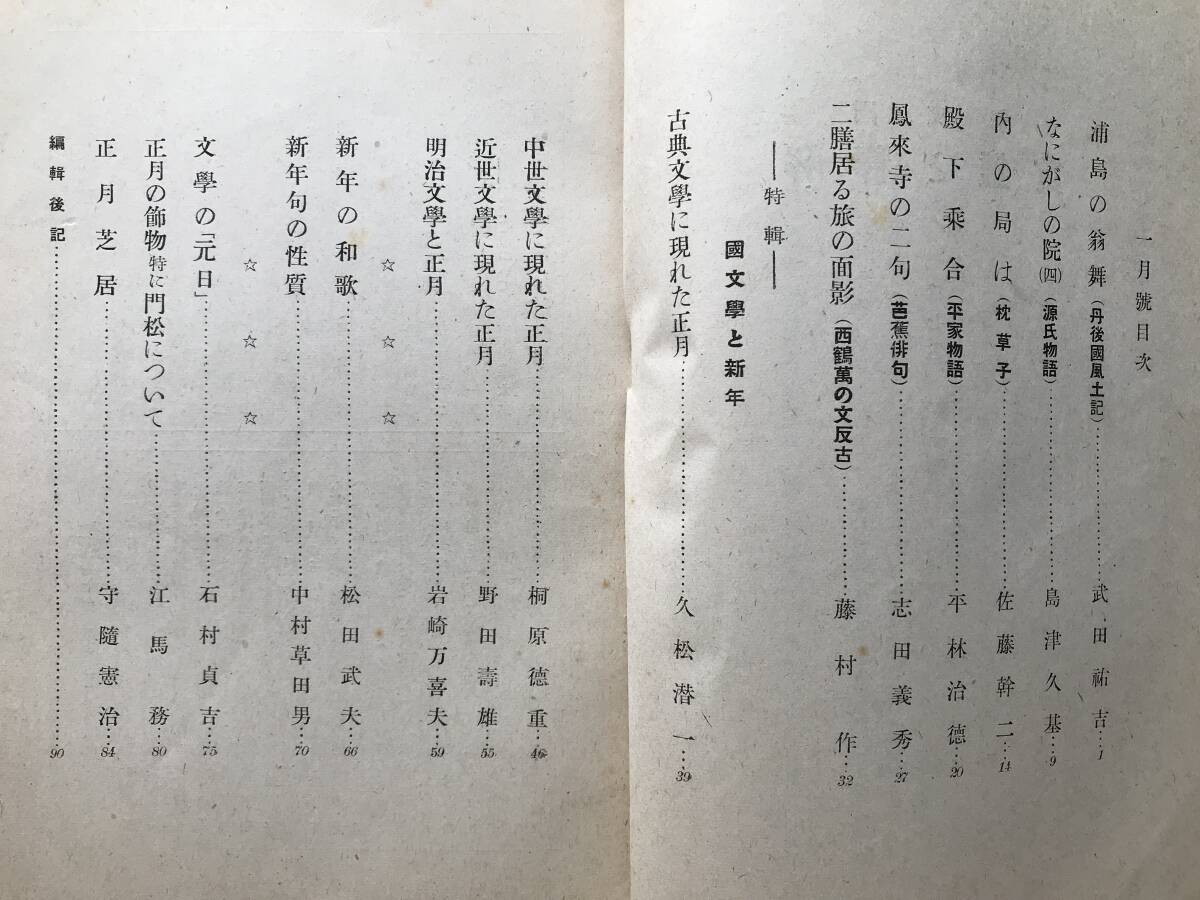 一月號目次
浦島の翁舞（丹後國風土記）……武田祐吉…1
なにがしの院（四）（源氏物語）……島津久基…9
內の局は（枕草子）……佐藤幹二…14
殿下乘合（平家物語）……平林治德…20
鳳來寺の二句（芭蕉俳句）……志田義秀…27
二膳居る旅の面影（西鶴萬の文反古）……藤村作…32
――特輯――
國文學と新年
古典文學に現れた正月……久松潜一…39
中世文學に現れた正月……桐原德重…46
近世文學に現れた正月……野田壽雄…55
明治文學と正月……岩崎万喜夫…59
☆☆☆
新年の和歌……松田武夫…66
新年句の性質……中村草田男…70
☆☆☆
文學の「元日」……石村貞吉…75
正月の飾物特に門松について……江馬務…80
正月芝居……守隨憲治…84
編輯後記……90